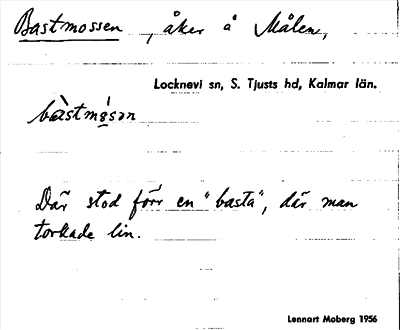 Bastmossen, åker å Målen,
Locknevi sn, S. Tjusts hd, Kalmar län.
Där stod förr en "basta", där man
torkade lin.
Lennart Moberg 1956